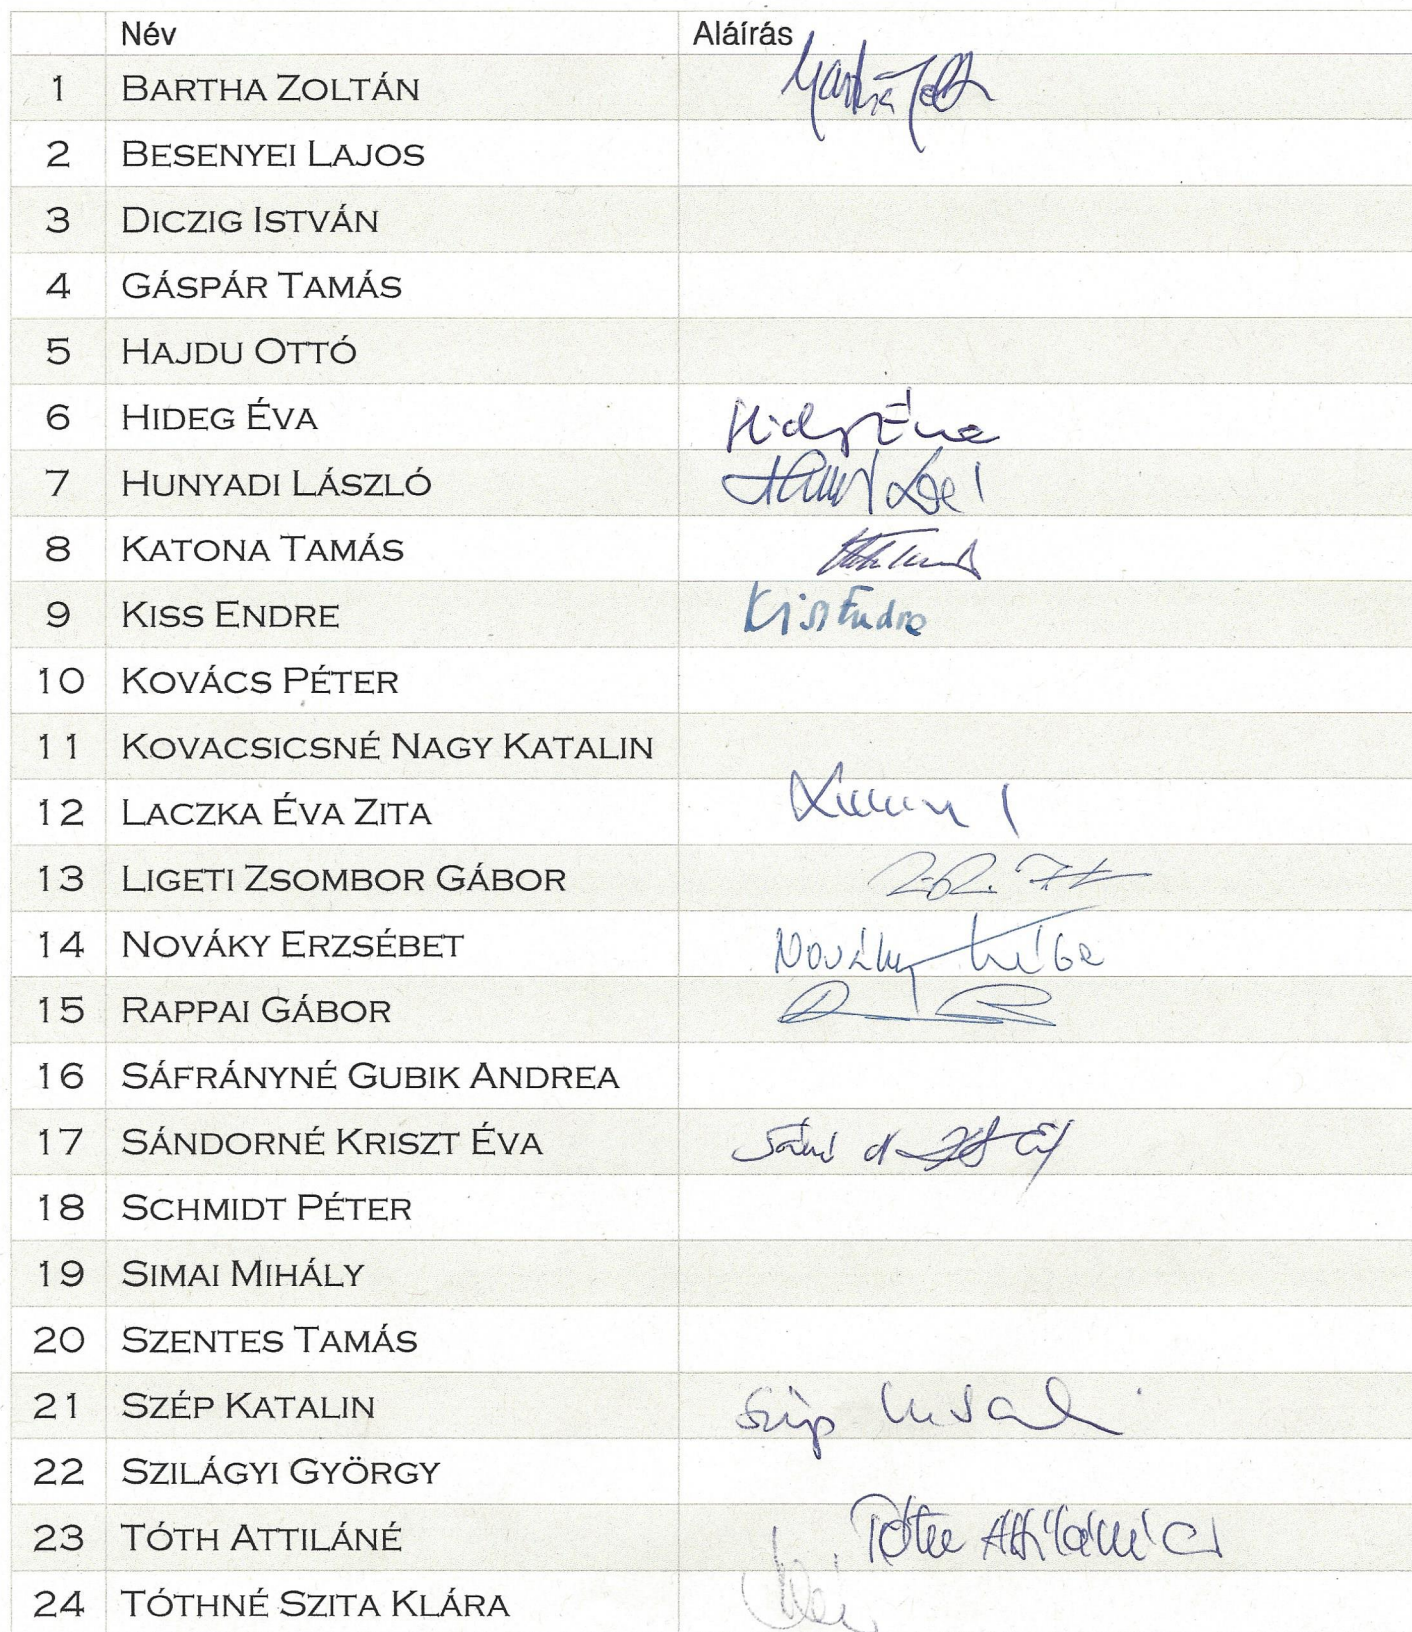 Név Aláírás
1 BARTHA ZOLTÁN
2 BESENYEI LAJOS
3 DICZIG ISTVÁN
4 GÁSPÁR TAMÁS
5 HAJDU OTTÓ
6 HIDEG ÉVA Hideg Éva
7 HUNYADI LÁSZLÓ
8 KATONA TAMÁS
9 KISS ENDRE Kiss Endre
10 KOVÁCS PÉTER
11 KOVACSICSNÉ NAGY KATALIN
12 LACZKA ÉVA ZITA
13 LIGETI ZSOMBOR GÁBOR
14 NOVÁKY ERZSÉBET Nováky
15 RAPPAI GÁBOR
16 SÁFRÁNYNÉ GUBIK ANDREA
17 SÁNDORNÉ KRISZT ÉVA
18 SCHMIDT PÉTER
19 SIMAI MIHÁLY
20 SZENTES TAMÁS
21 SZÉP KATALIN Szép
22 SZILÁGYI GYÖRGY
23 TÓTH ATTILÁNÉ Tóth Attiláné
24 TÓTHNÉ SZITA KLÁRA